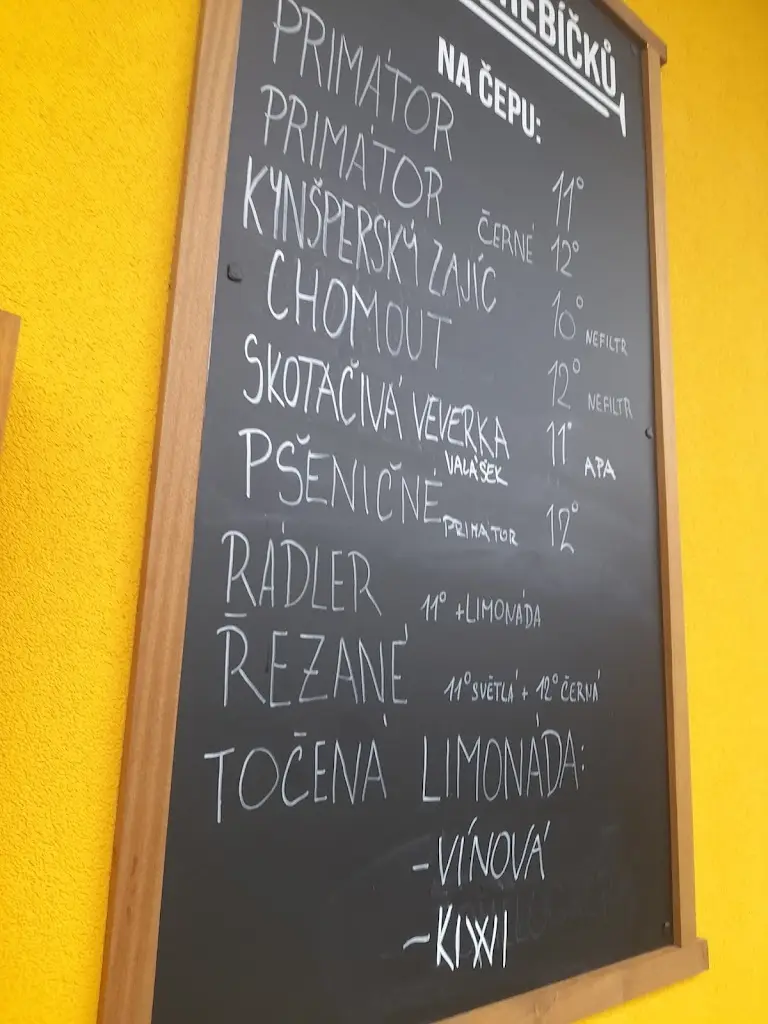 NA ČEPU:
PRIMÁTOR 11°
PRIMÁTOR ČERNÉ 12°
KYNŠPERSKÝ ZAJÍC 10° NEFILTR
CHOMOUT 12° NEFILTR
SKOTAČIVÁ VEVERKA VALÁŠEK 11° APA
PŠENIČNÉ PRIMÁTOR 12°
RÁDLER 11° +LIMONÁDA
ŘEZANÉ 11° SVĚTLÁ + 12° ČERNÁ
TOČENÁ LIMONÁDA:
-VÍNOVÁ
-KIWI